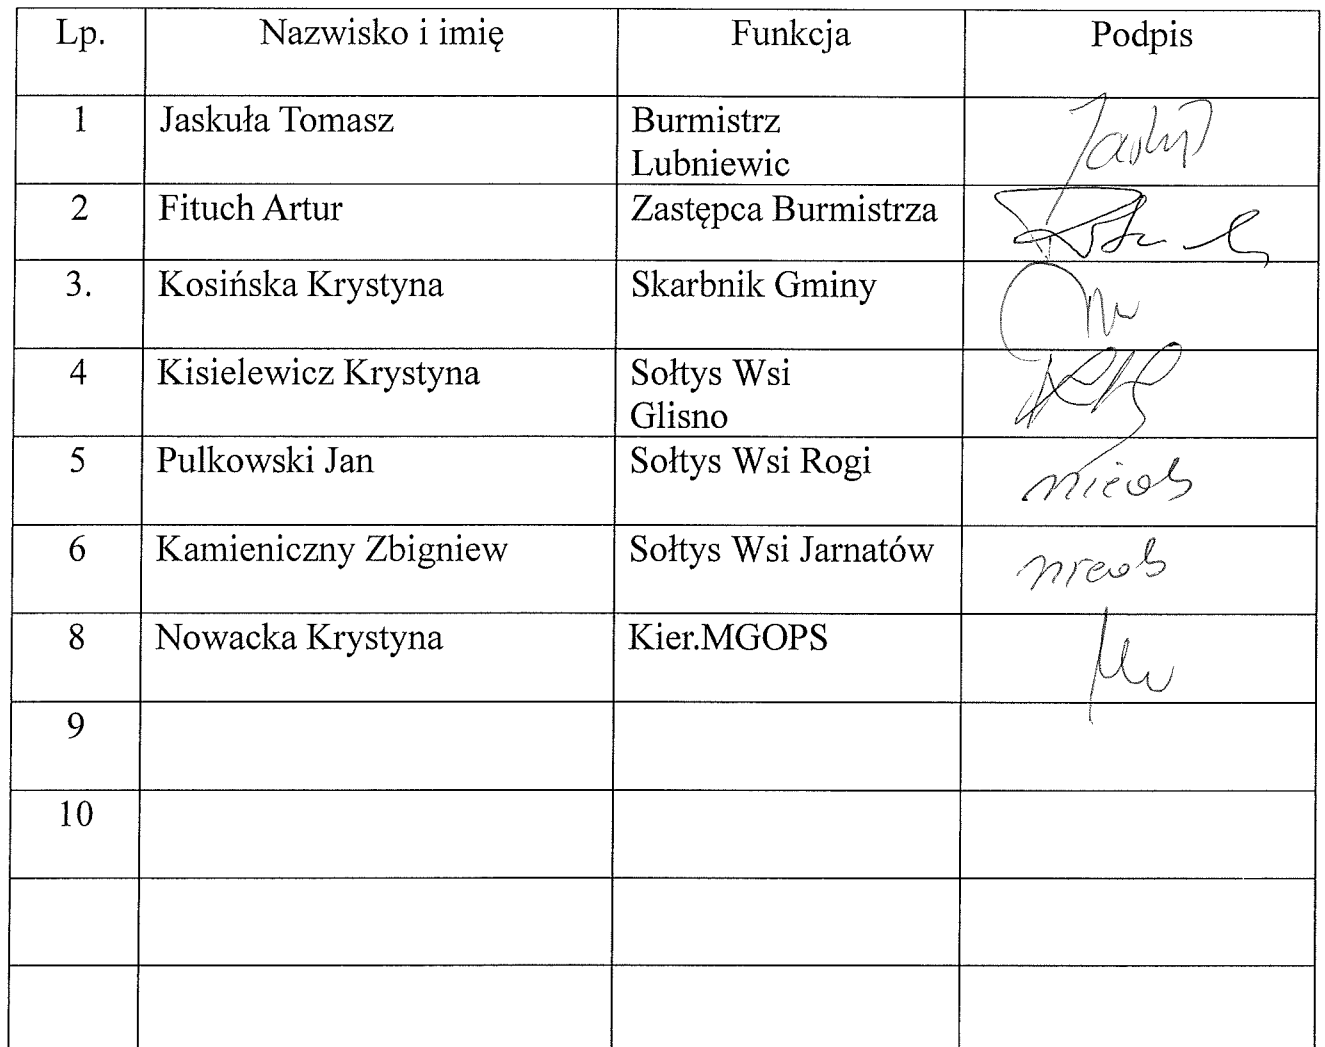 Lp. Nazwisko i imię Funkcja Podpis
1 Jaskuła Tomasz Burmistrz
Lubniewic
2 Fituch Artur Zastępca Burmistrza
3. Kosińska Krystyna Skarbnik Gminy
4 Kisielewicz Krystyna Sołtys Wsi
Glisno
5 Pulkowski Jan Sołtys Wsi Rogi nieob
6 Kamieniczny Zbigniew Sołtys Wsi Jarnatów nieob
8 Nowacka Krystyna Kier.MGOPS
9
10